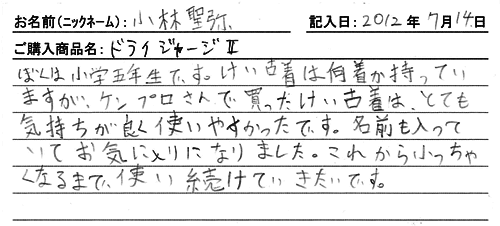 お名前(ニックネーム): 小林聖弥 記入日: 2012年 7月 14日
ご購入商品名: ドライジャージⅡ
ぼくは小学五年生です。けい古着は何着か持ってい
ますが、ケンプロさんで買っだけい古着は、とても
気持ちが良く使いやすかったです。名前も入って
いてお気に入りになりました。これから小っちゃ
くなるまで、使い続けていきたいです。